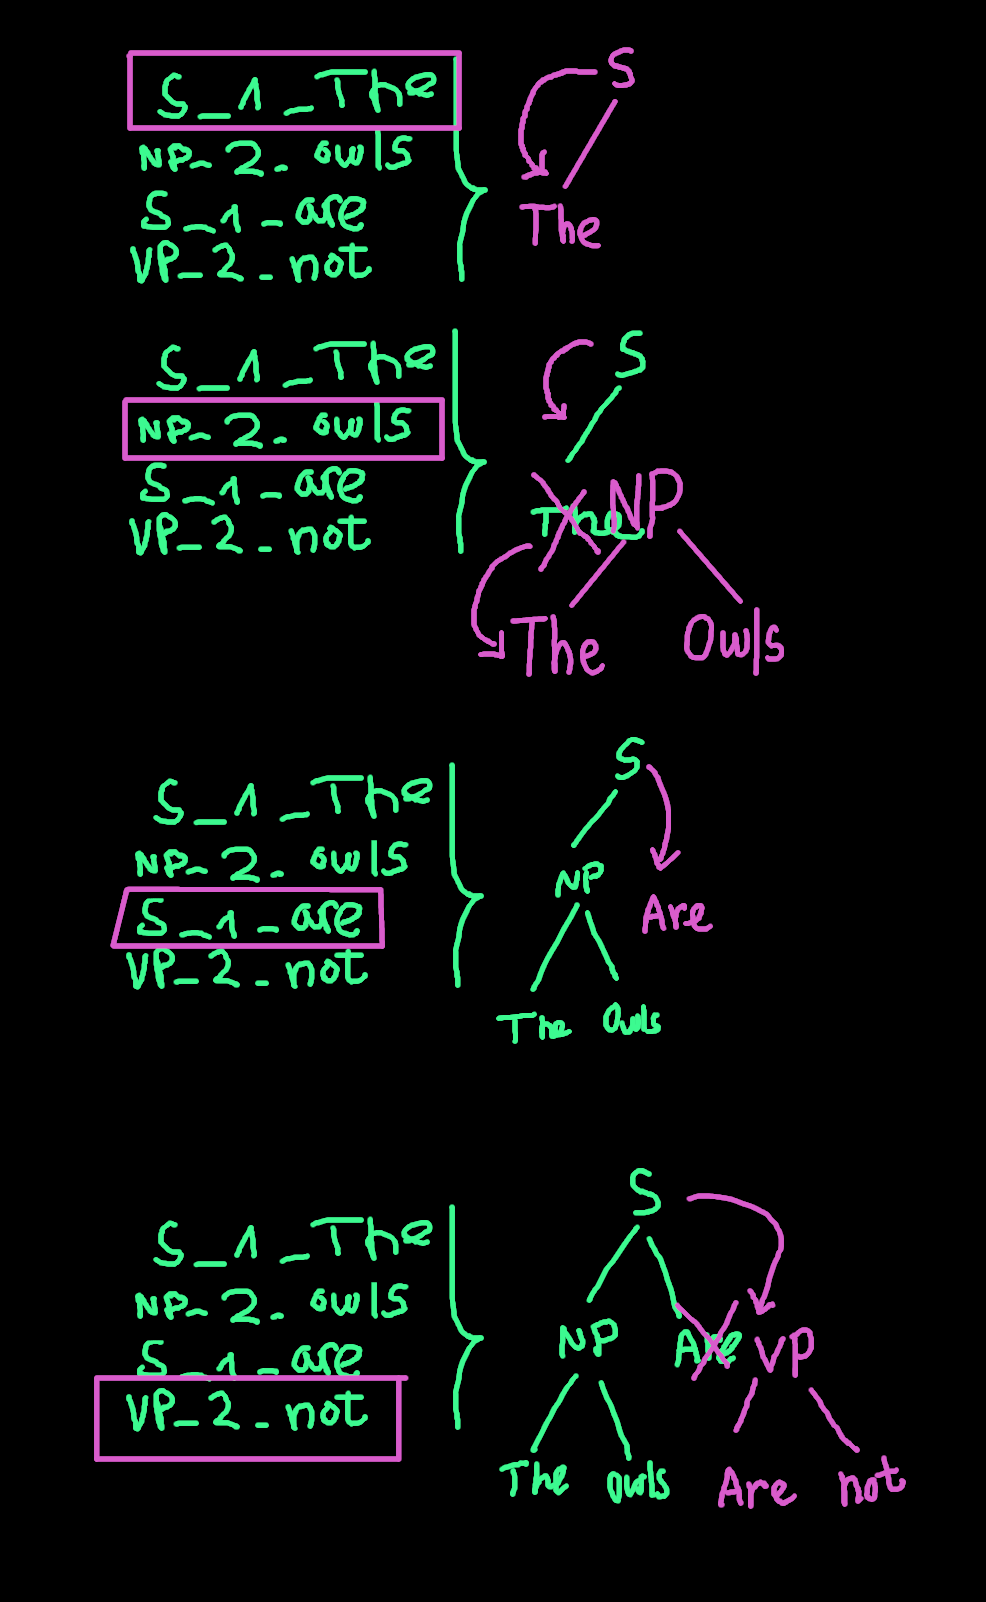 S_1_The
NP_2_owls
S_1_are
VP_2_not
S
The
S_1_The
NP_2_owls
S_1_are
VP_2_not
S
The NP
The Owls
S_1_The
NP_2_owls
S_1_are
VP_2_not
S
NP Are
The Owls
S_1_The
NP_2_owls
S_1_are
VP_2_not
S
NP Are VP
The owls Are not